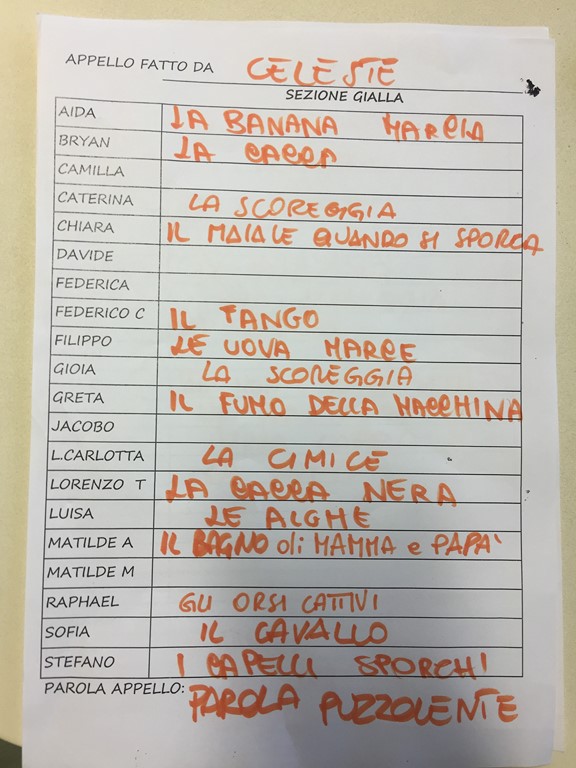 APPELLO FATTO DA CELESTE
SEZIONE GIALLA
AIDA LA BANANA MARCIA
BRYAN LA CACCA
CAMILLA
CATERINA LA SCOREGGIA
CHIARA IL MAIALE QUANDO SI SPORCA
DAVIDE
FEDERICA
FEDERICO C IL FANGO
FILIPPO LE UOVA MARCE
GIOIA LA SCOREGGIA
GRETA IL FUMO DELLA MACCHINA
JACOBO
L.CARLOTTA LA CIMICE
LORENZO T LA CACCA NERA
LUISA LE ALGHE
MATILDE A IL BAGNO di MAMMA e PAPA'
MATILDE M
RAPHAEL GLI ORSI CATTIVI
SOFIA IL CAVALLO
STEFANO I CAPELLI SPORCHI
PAROLA APPELLO: PAROLA PUZZOLENTE